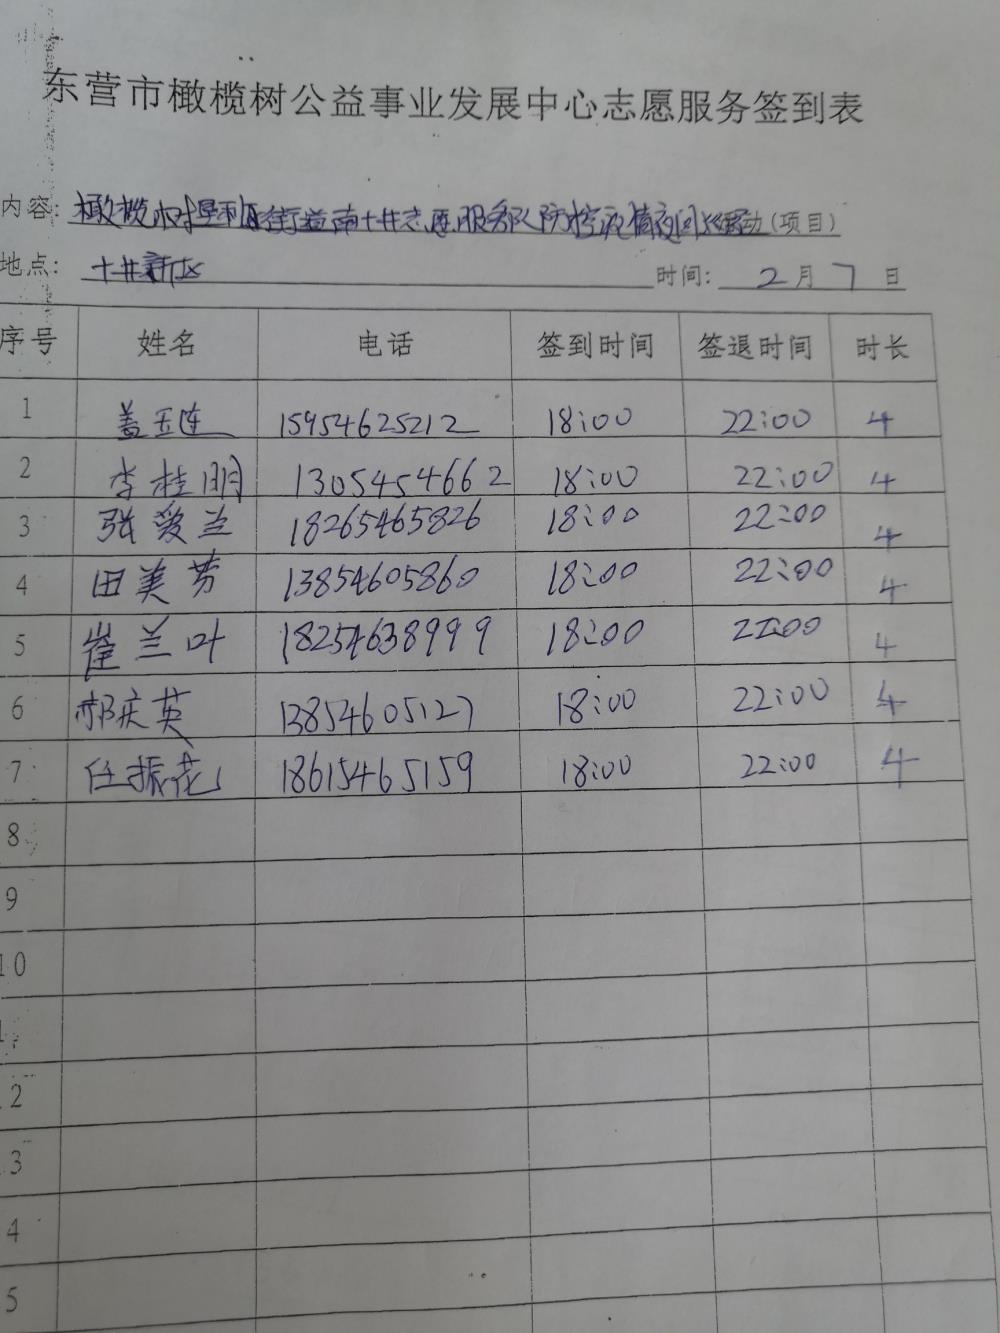 东营市橄榄树公益事业发展中心志愿服务签到表
内容: 橄榄树垦利区街益南十井志愿服务队防控疫情夜间 动(项目)
地点: 十井新区 时间: 2月7日
序号 姓名 电话 签到时间 签退时间 时长
1 盖玉连 15954625212 18:00 22:00 4
2 李桂明 13054544662 18:00 22:00 4
3 张爱兰 18265465826 18:00 22:00 4
4 田美芳 13854605860 18:00 22:00 4
5 崔兰叶 18254638999 18:00 22:00 4
6 郝庆英 13854605127 18:00 22:00 4
7 任振花 18615465159 18:00 22:00 4
8
9
10
1
2
3
4
5